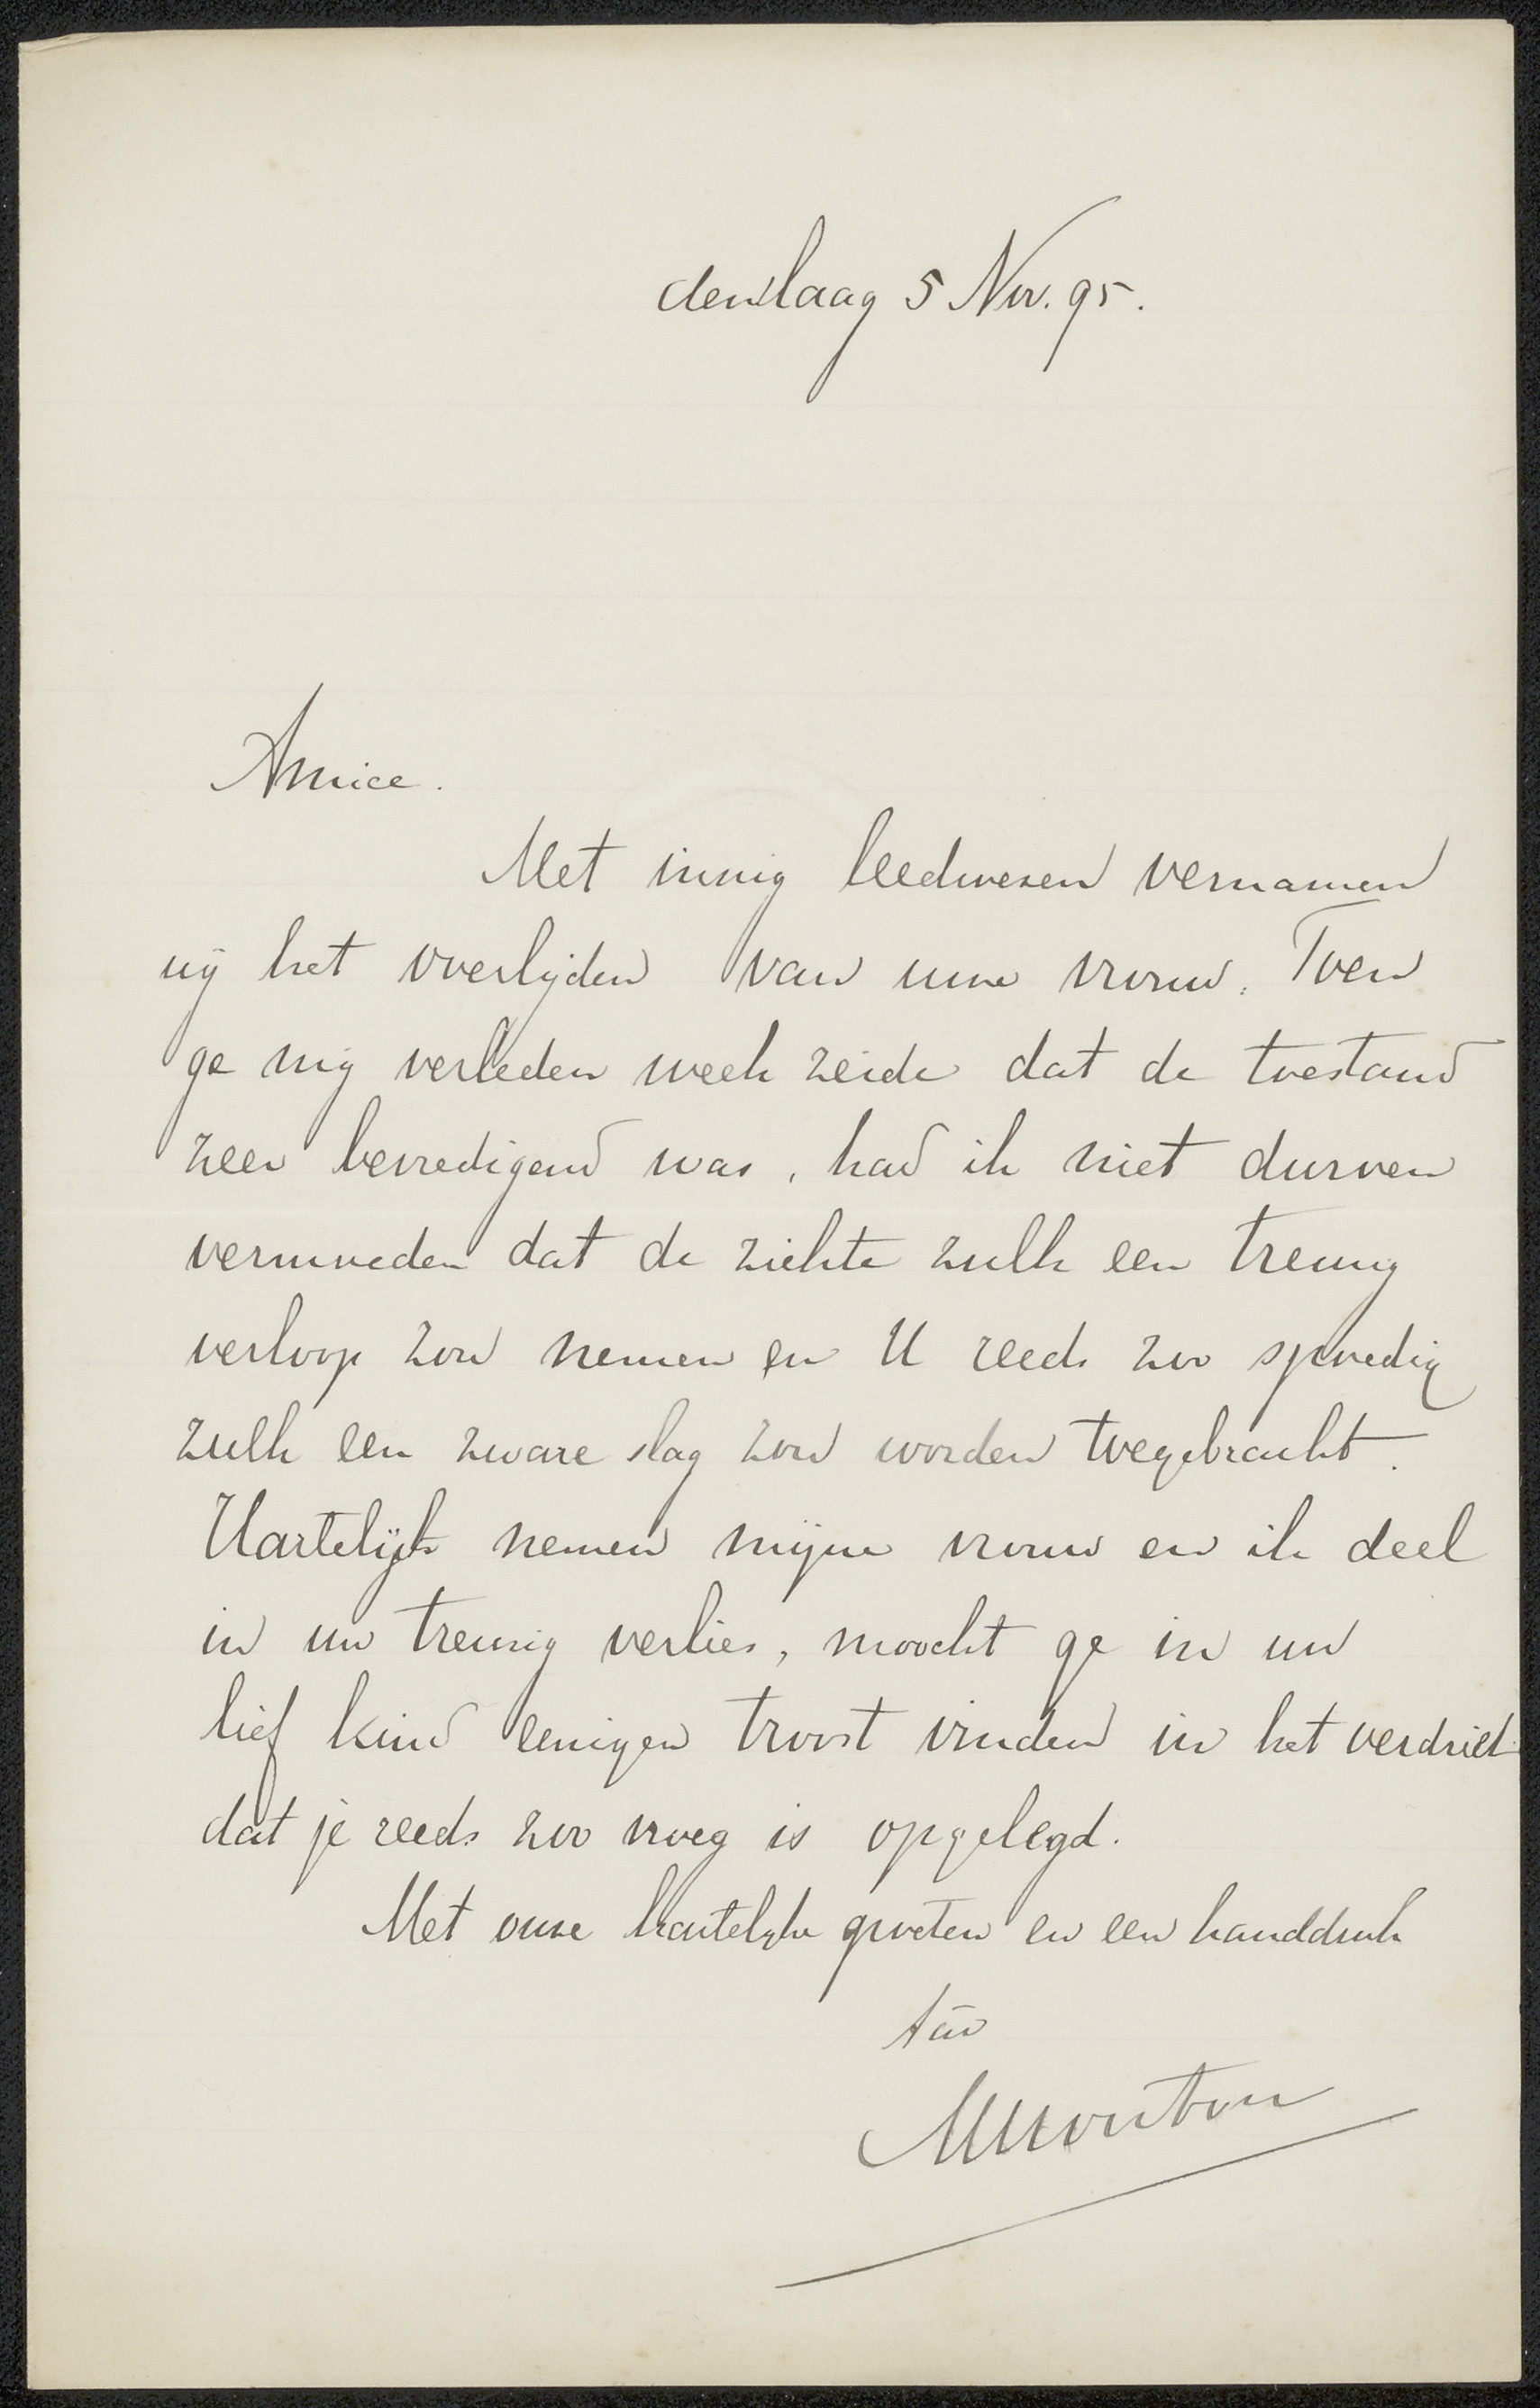 den Haag 5 Nov. 95.
Amice.
Met innig leedwezen vernamen
wij het overlijden van uwe vrouw. Toen
ge mij verleden week zeide dat de toestand
zeer bevredigend was, had ik niet durven
vermoeden dat de ziekte zulk een treurig
verloop zou nemen en U reeds zoo spoedig
zulk een zware slag zou worden toegebracht.
Hartelijk nemen mijne vrouw en ik deel
in uw treurig verlies, moocht ge in uw
lief kind eenigen troost vinden in het verdriet
dat je reeds zoo vroeg is opgelegd.
Met onze hartelijke groeten en een handdruk
tàv
Mouton